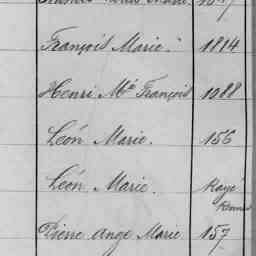 François Marie. 1814
Henri Mie François 1088
Léon Marie. 156
Léon Marie. Rayé
Pierre Ange Marie 157